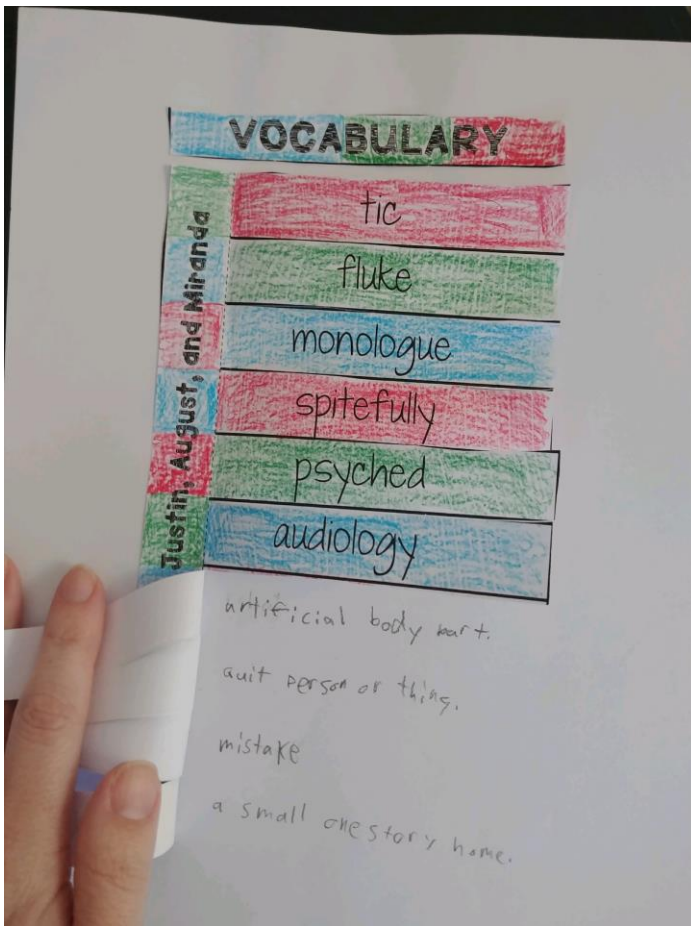 VOCABULARY
Justin, August, and Miranda
tic
fluke
monologue
spitefully
psyched
audiology
artificial body part.
quit person or thing.
mistake
a small one story home.